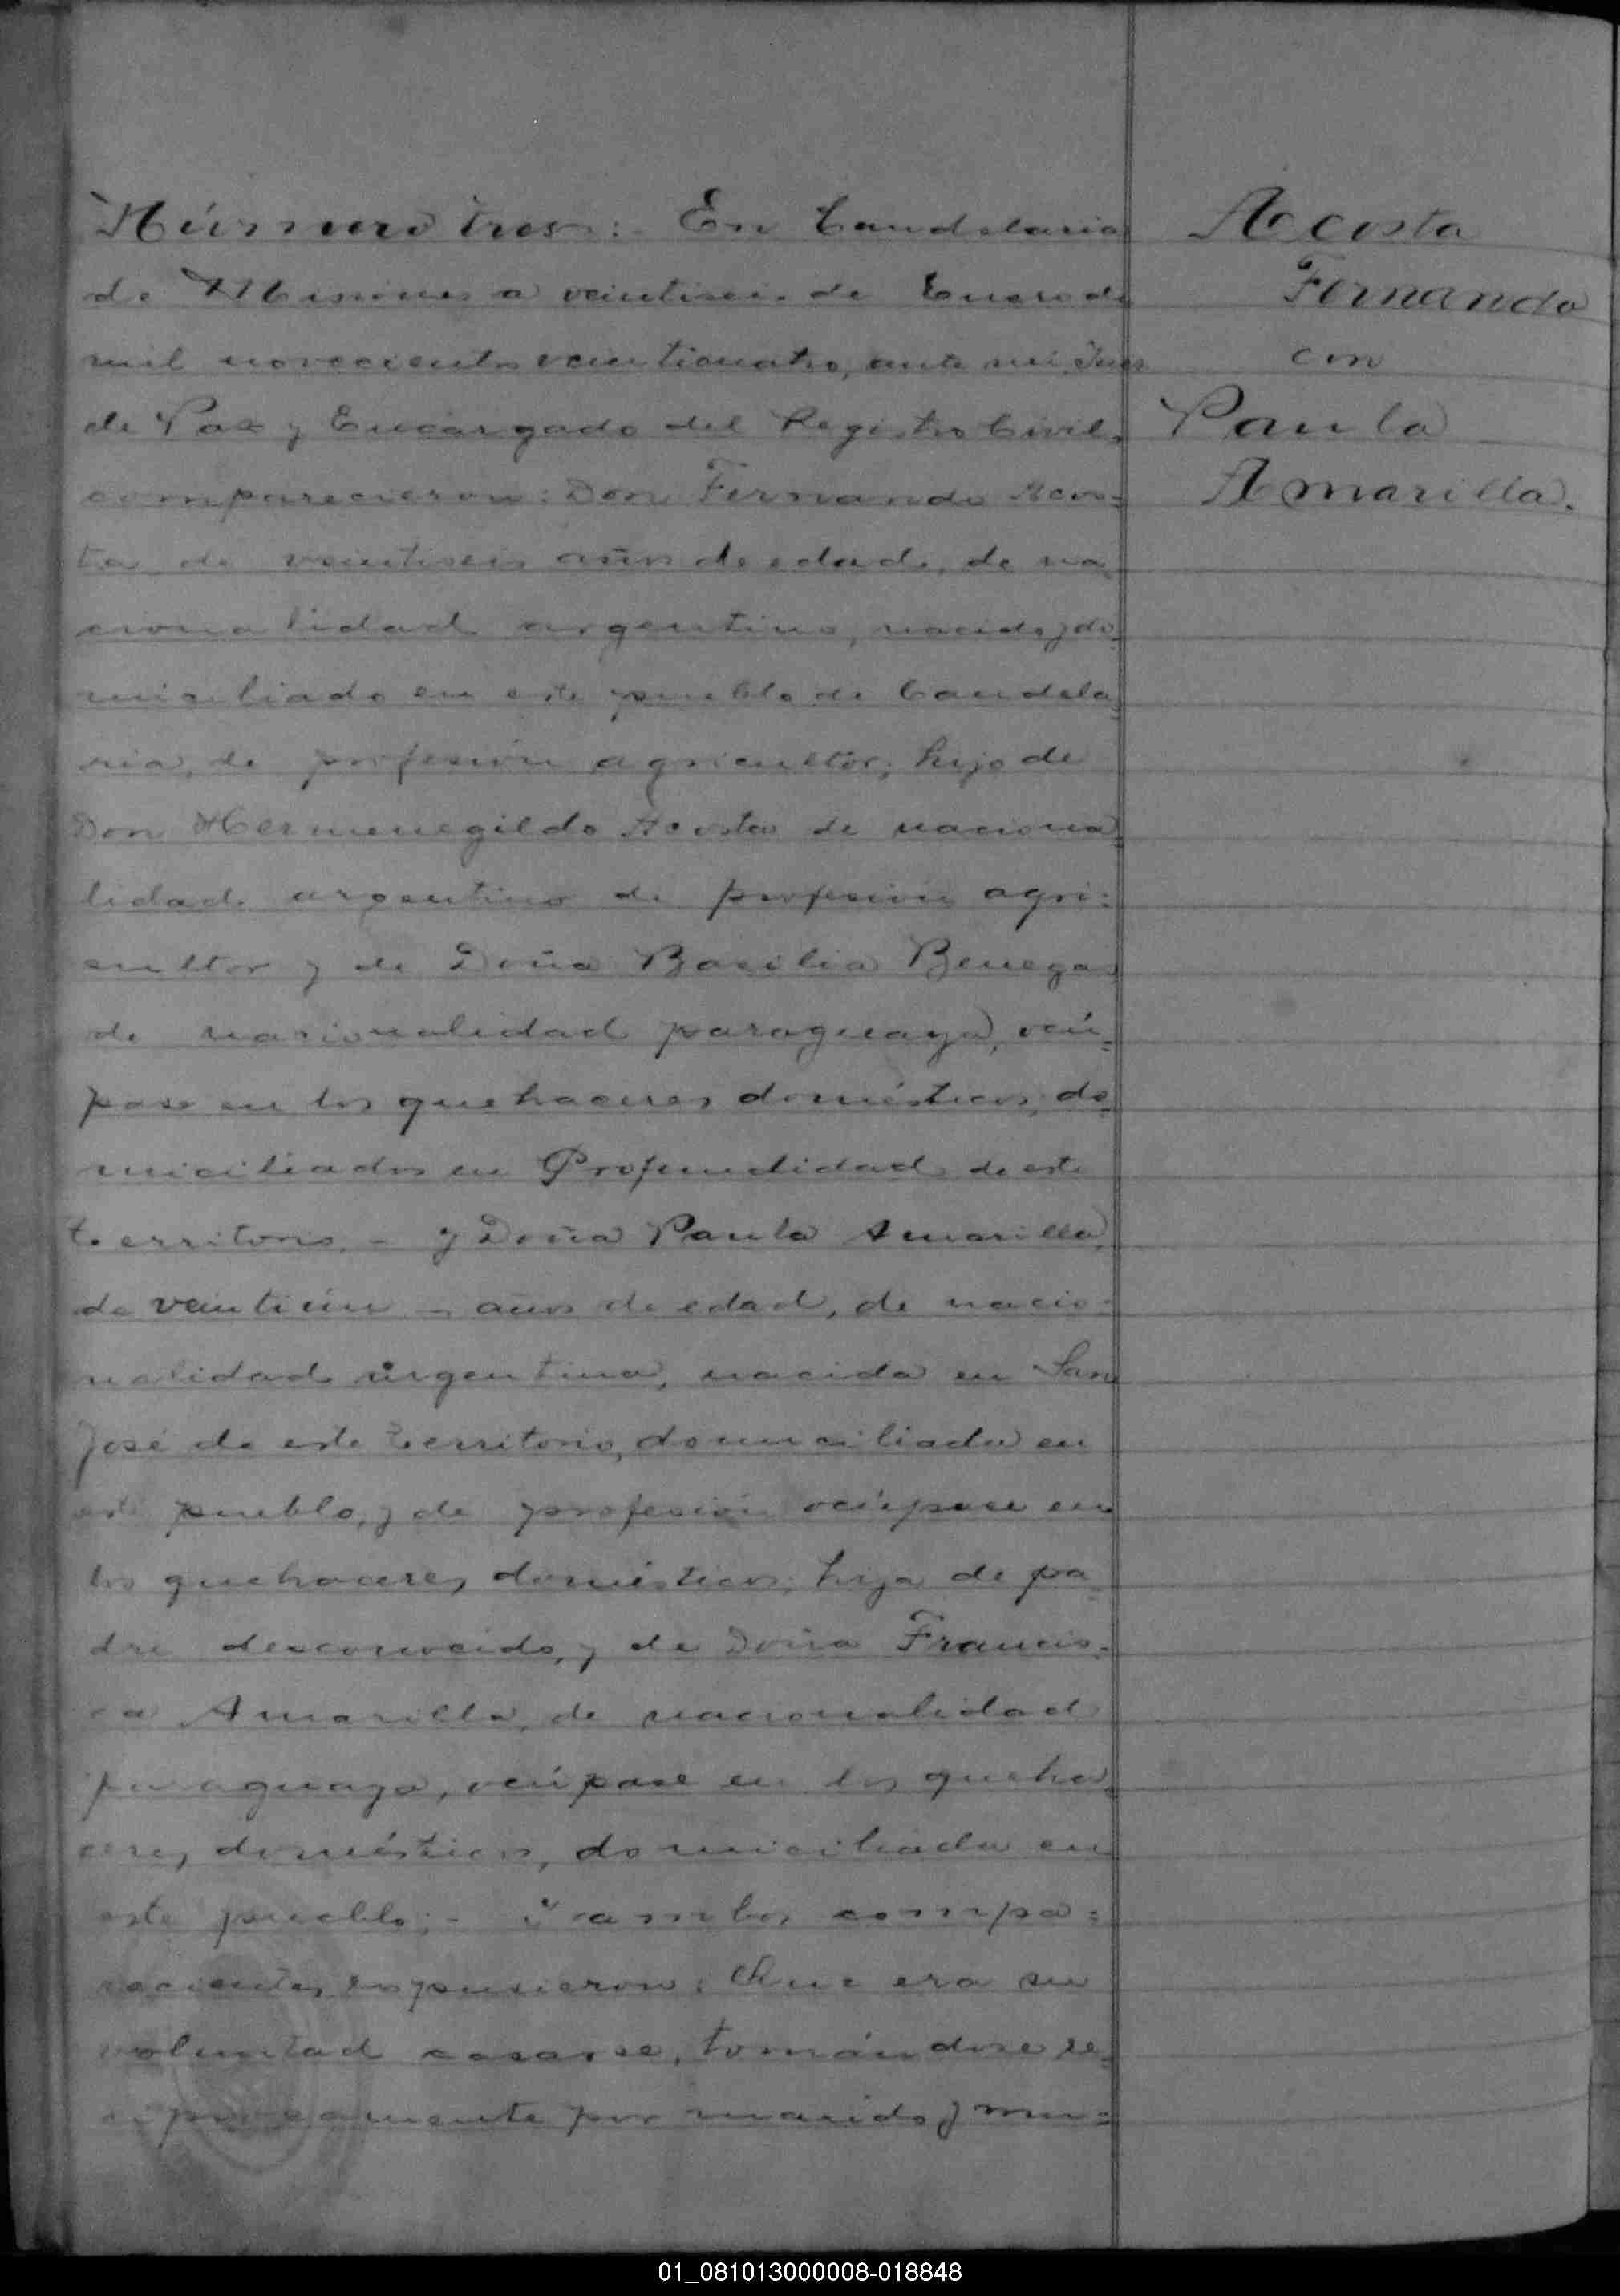 Número tres:- En Candelaria
de Misiones a veintiseis de Enero de
mil novecientos veinticuatro, ante mi, Juez
de Paz y Encargado del Registro Civil,
comparecieron: Don Fernando Acos=
ta de veintiseis años de edad, de na
cionalidad argentino, nacido y do=
miciliado en este pueblo de Candela
ria, de profesión agricultor; hijo de
Don Hermenegildo Acosta de naciona
lidad argentino de profesión agri=
cultor y de Doña Basilia Benega
de nacionalidad paraguaya, ocú=
pase en los quehaceres domésticos, do=
miciliados en Profundidad de este
territorio. - y Doña Paula Amarilla,
de veintiún - años de edad, de nacio=
nalidad argentina, nacida en San
José de este territorio, domiciliada en
este pueblo, y de profesión ocúpase en
los quehaceres domésticos; hija de pa
dre desconocido, y de Doña Francis=
ca Amarilla, de nacionalidad
paraguaya, ocúpase en los queha=
ceres domésticos, domiciliada en
este pueblo;- Y ambos compa=
recientes expusieron: Que era su
voluntad casarse, tomándose re=
ciprocamente por marido y mu=
Acosta
Fernando
con
Paula
Amarilla.
01_081013000008-018848